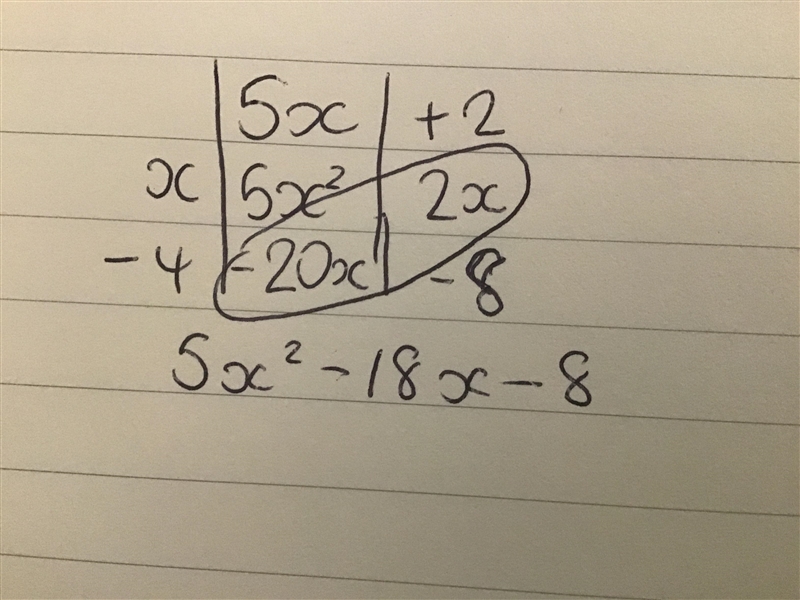 5x +2
x 5x² 2x
-4 -20x -8
5x² - 18x - 8